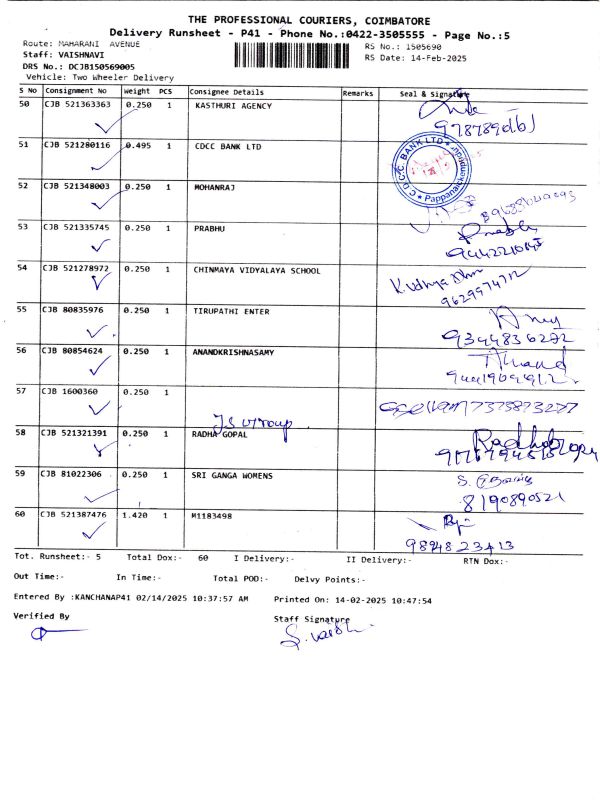 THE PROFESSIONAL COURIERS, COIMBATORE
Delivery Runsheet - P41 - Phone No.:0422-3505555 - Page No.:5
Route: MAHARANI AVENUE
RS No.: 1505690
Staff: VAISHNAVI
RS Date: 14-Feb-2025
DRS No.: DCJB150569005
Vehicle: Two Wheeler Delivery
S No Consignment No Weight PCS Consignee Details Remarks Seal & Signature
50 CJB 521363363 0.250 1 KASTHURI AGENCY
51 CJB 521280116 0.495 1 CDCC BANK LTD
C.D.C.C. BANK LTD
52 CJB 521348003 0.250 1 MOHANRAJ
53 CJB 521335745 0.250 1 PRABHU
54 CJB 521278972 0.250 1 CHINMAYA VIDYALAYA SCHOOL
9629974712
55 CJB 80835976 0.250 1 TIRUPATHI ENTER
9344836272
56 CJB 80854624 0.250 1 ANANDKRISHNASAMY
Anand
57 CJB 1600360 0.250 1
7373873277
JS Group
58 CJB 521321391 0.250 1 RADHA GOPAL
59 CJB 81022306 0.250 1 SRI GANGA WOMENS
8190890521
60 CJB 521387476 1.420 1 M1183498
9894823413
Tot. Runsheet:- 5 Total Dox:- 60 I Delivery:- II Delivery:- RTN Dox:-
Out Time:- In Time:- Total POD:- Delvy Points:-
Entered By :KANCHANAP41 02/14/2025 10:37:57 AM Printed On: 14-02-2025 10:47:54
Verified By
Staff Signature